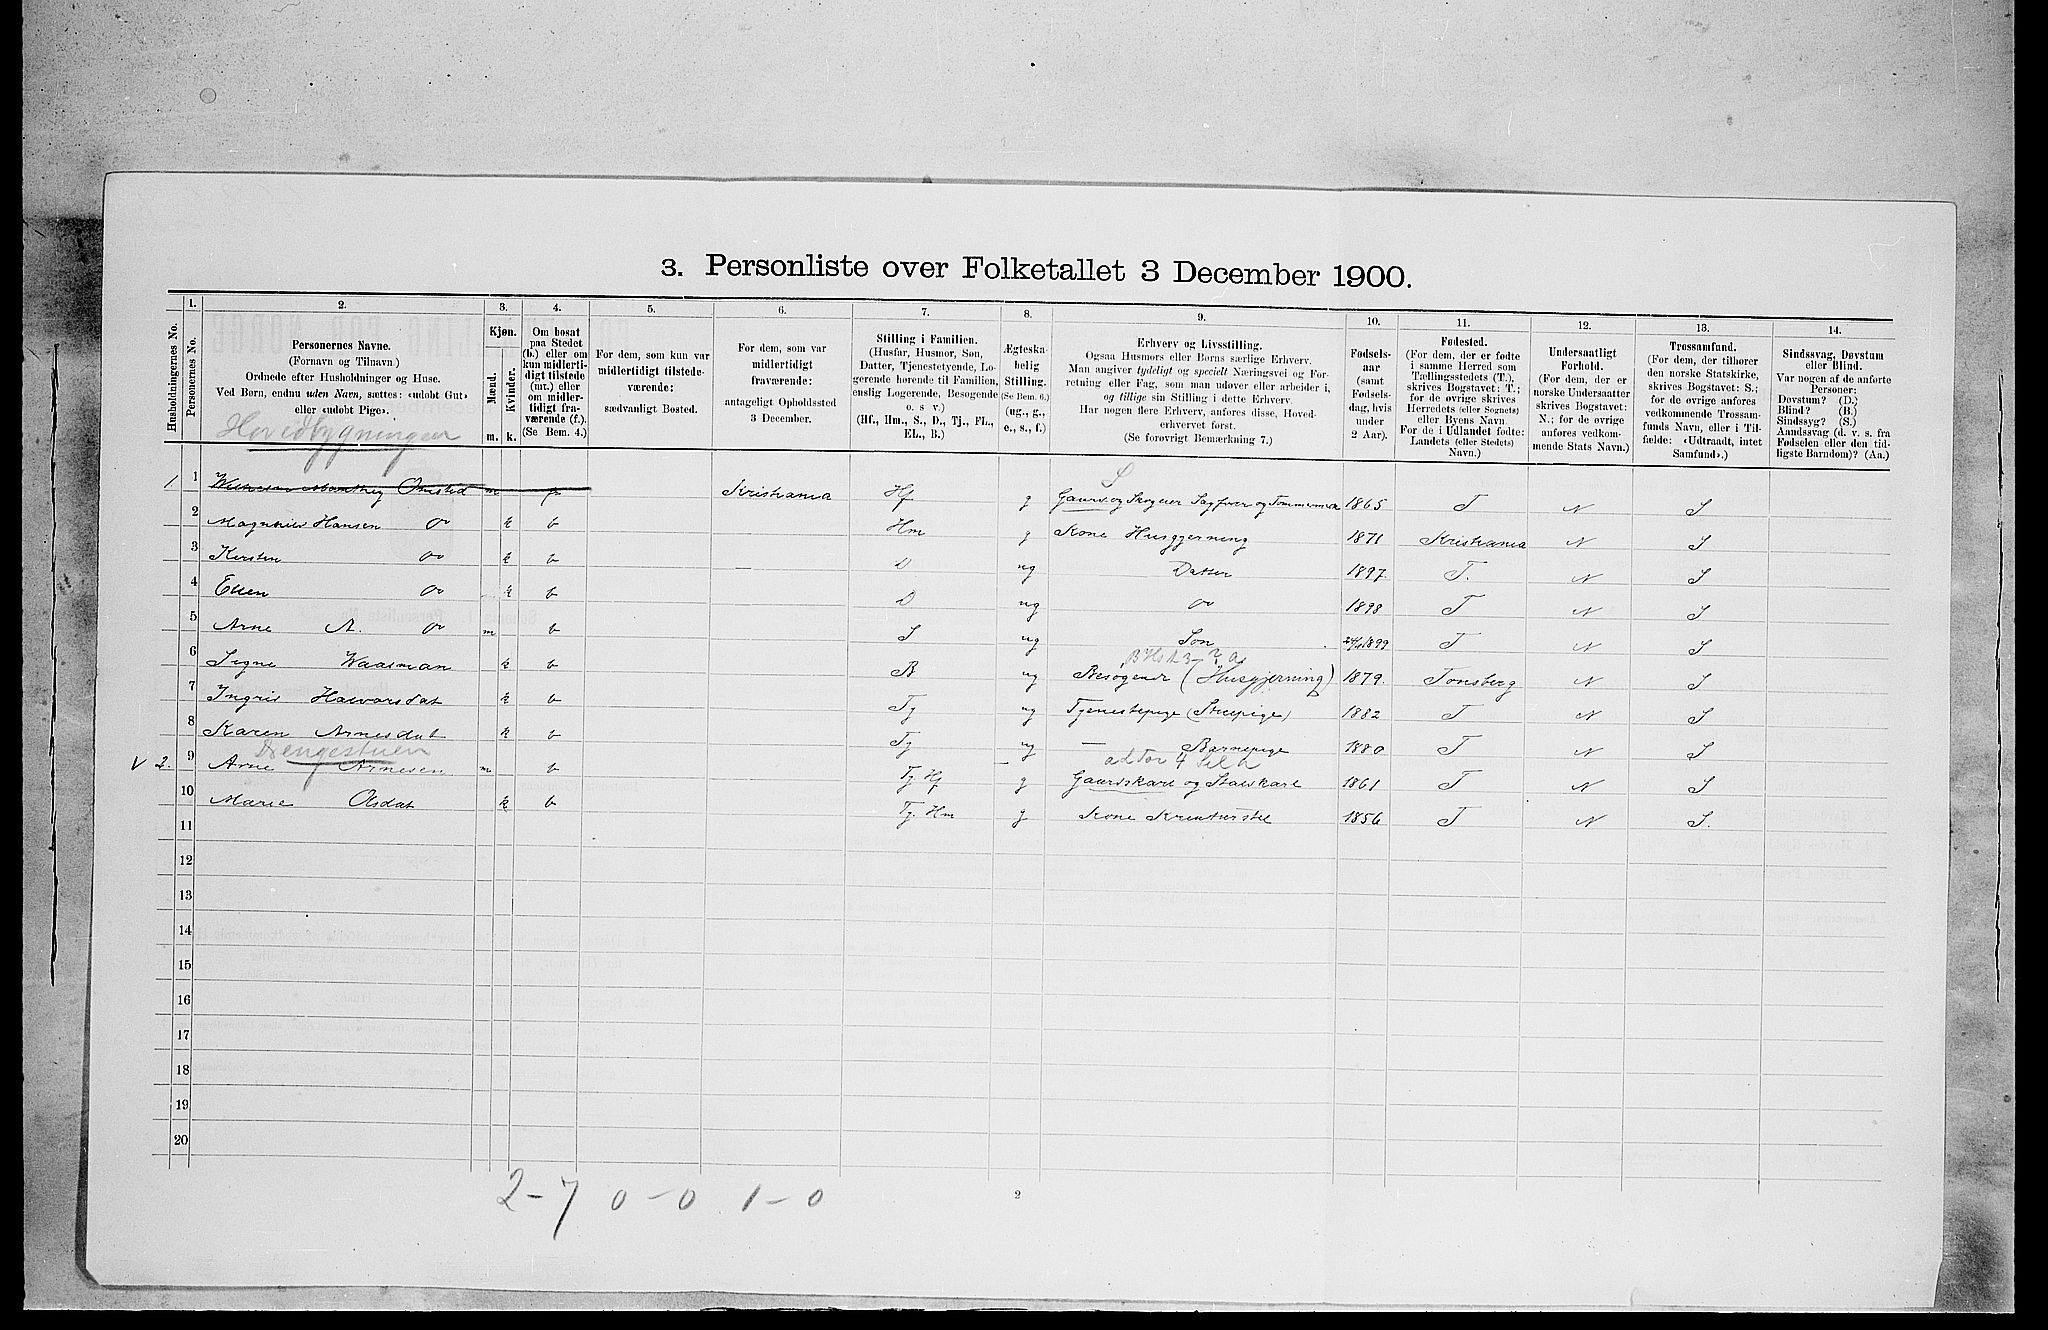 3. Personliste over Folketallet 3 December 1900.
Husholdningernes No.
1.
Personernes No.
2.
Personernes Navne.
(Fornavn og Tilnavn.)
Ordnede efter Husholdninger og Huse.
Ved Børn, endnu uden Navn, sættes: «udøbt Gut»
eller «udøbt Pige».
3.
Kjøn.
Mænd.
Kvinder.
m. k.
4.
Om bosat
paa Stedet
(b.) eller om
kun midlerti-
digt tilstede
(mt.) eller
om midler-
tidigt fra-
værende (f.).
(Se Bem. 4.)
5.
For dem, som kun var
midlertidigt tilstede-
værende:
sædvanligt Bosted.
6.
For dem, som var
midlertidigt
fraværende:
antageligt Opholdssted
3 December.
7.
Stilling i Familien.
(Husfar, Husmor, Søn,
Datter, Tjenestetyende, Lo-
gerende hørende til Familien,
enslig Logerende, Besøgende
o. s v.)
(Hf., Hm., S., D., Tj., FL.,
EL., B.)
8.
Ægteska-
belig
Stilling.
(Se Bem. 6.)
(ug., g.,
e., s., f.)
9.
Erhverv og Livsstilling.
Ogsaa Husmors eller Børns særlige Erhverv.
Man angiver tydeligt og specielt Næringsvei og For-
retning eller Fag, som man udøver eller arbeider i,
og tillige sin Stilling i dette Erhverv.
Har nogen flere Erhverv, anføres disse, Hoved-
erhvervet først.
(Se forøvrigt Bemærkning 7.)
10.
Fødsels-
aar
(samt
Fødsels-
dag, hvis
under
2 Aar).
11.
Fødested.
(For dem, der er fødte
i samme Herred som
Tællingsstedets (T.),
skrives Bogstavet: T.;
for de øvrige skrives
Herredets (eller Sognets)
eller Byens Navn.
For de i Udlandet fødte:
Landets (eller Stedets)
Navn.)
12.
Undersaatligt
Forhold.
(For dem, der er
norske Undersaatter
skrives Bogstavet:
N.; for de øvrige
anføres vedkom-
mende Stats Navn.)
13.
Trossamfund.
(For dem, der tilhører
den norske Statskirke,
skrives Bogstavet: S.;
for de øvrige anføres
vedkommende Trossam-
funds Navn, eller i Til-
fælde: «Udtraadt, intet
Samfund».)
14.
Sindssvag, Døvstum
eller Blind.
Var nogen af de anførte
Personer:
Døvstum? (D.)
Blind? (B.)
Sindssyg? (S.)
Aandssvag (d. v. s. fra
Fødselen eller den tid-
ligste Barndom)? (Aa.)
Hovedbygningen
S
1. 1 Omsted m f Kristiania Hf g Gaard og Skogeier 1865 T N S
2 Hansen do k b Hm g Kone Husgjerning 1871 Kristiania N S
3 Kersten do k b D ug Datter 1897 T. N S
4 Ellen do k b D ug do 1898 T N S
5 Arne A. do m b S ug Søn 1899 T N S
6 Signe Waasman k b B ug Besøgende (Husgjerning) 1879. Tønsberg N S
7 Ingrid Halvorsdat k b Tj ug Tjenestepige (Stuepige) 1882 T N S
8 Karen Arnesdat k b Tj ug — Barnepige 1880 T N S
Drengestuen
V 2. 9 Arne Arnesen m b Tj Hf g Gaardskarl og Staldkarl 1861 T N S
10 Marie Olsdat k b Tj. Hm g Kone Kreaturstel 1856 T N S.
11
12
13
14
15
16
17
18
19
20
2-7 0-0 1-0
2